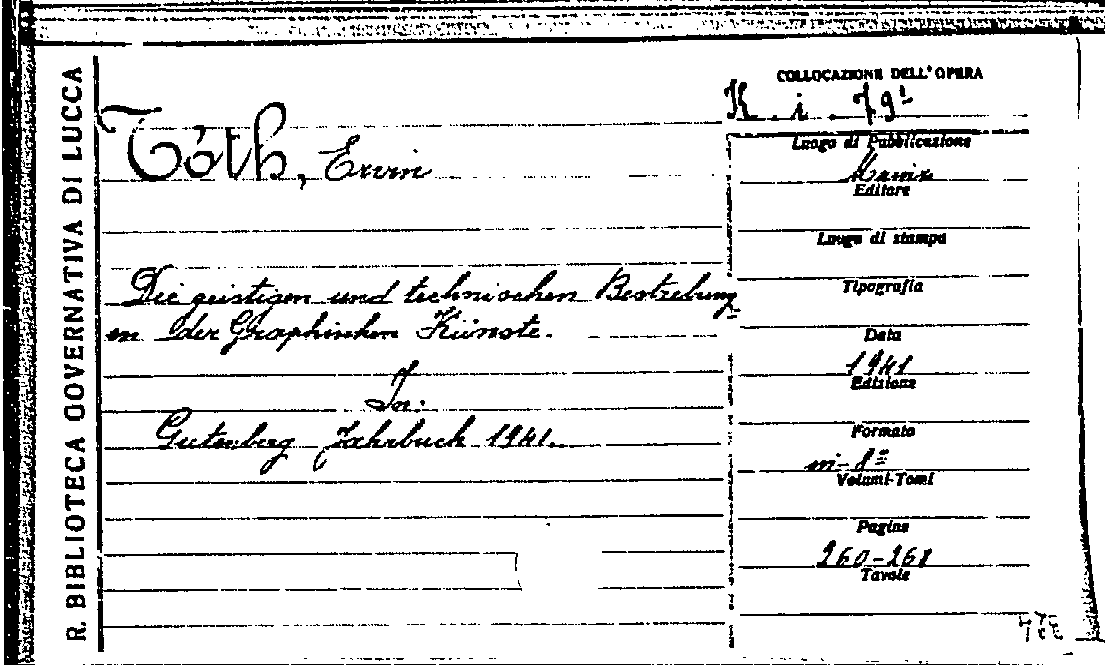 R. BIBLIOTECA GOVERNATIVA DI LUCCA
Tóth, Ervin
Die geistigen und technischen Bestrebung
en der Graphischen Künste.
In:
Gutenberg Jahrbuch 1941.
COLLOCAZIONE DELL'OPERA
K. i. 79¹
Luogo di Pubblicazione
Mainz
Editore
Luogo di stampa
Tipografia
Data
1941
Edizione
Formato
in-8º
Volumi-Tomi
Pagine
260-268
Tavole